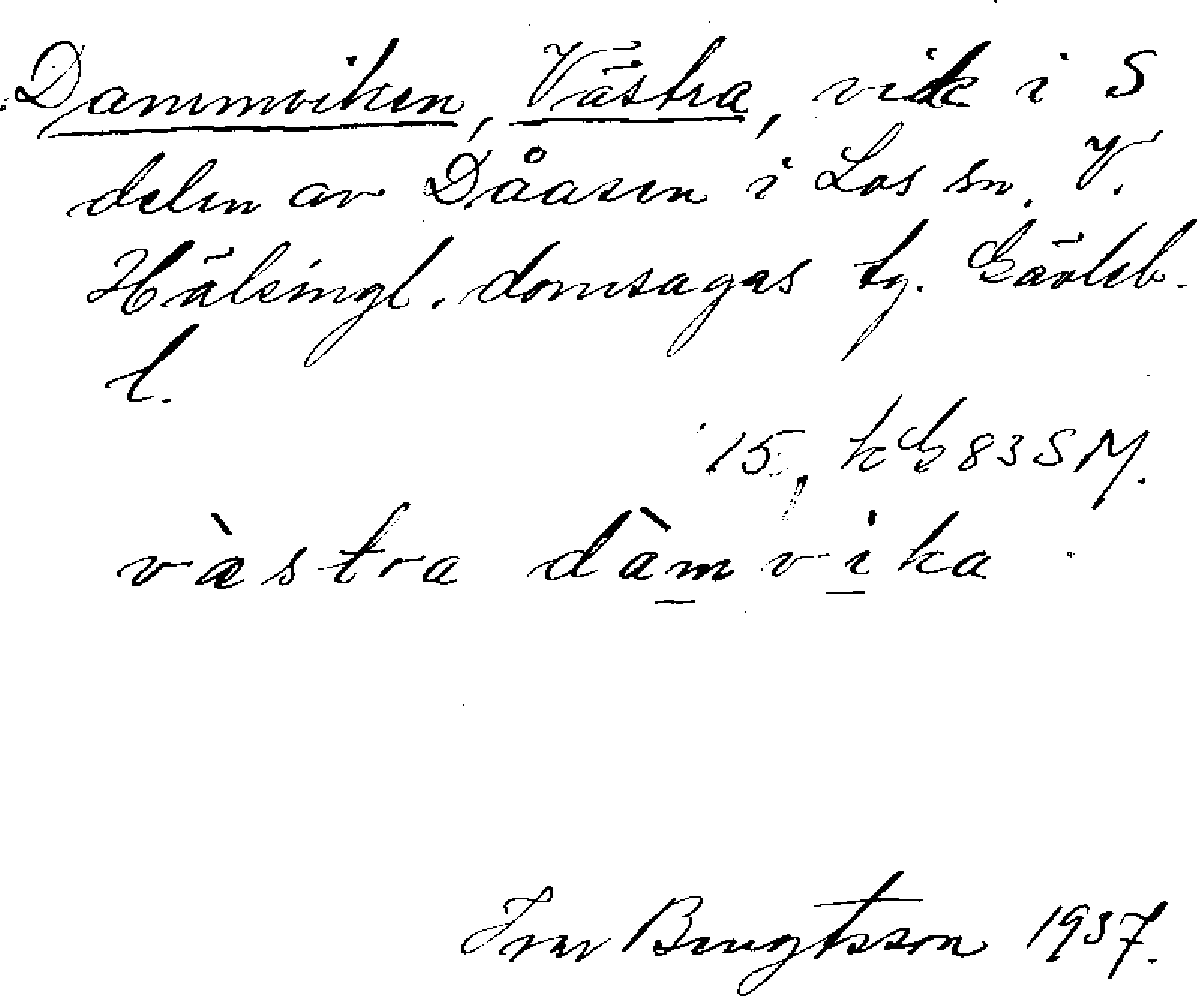 Dammviken, Västra, vik i S
delen av Dåasen i Los sn. V.
Hälsingl. domsagas tg. Gävleb.
l.
15, k G 83 S M.
västra dàmvika
Ivar Bengtsson 1937.